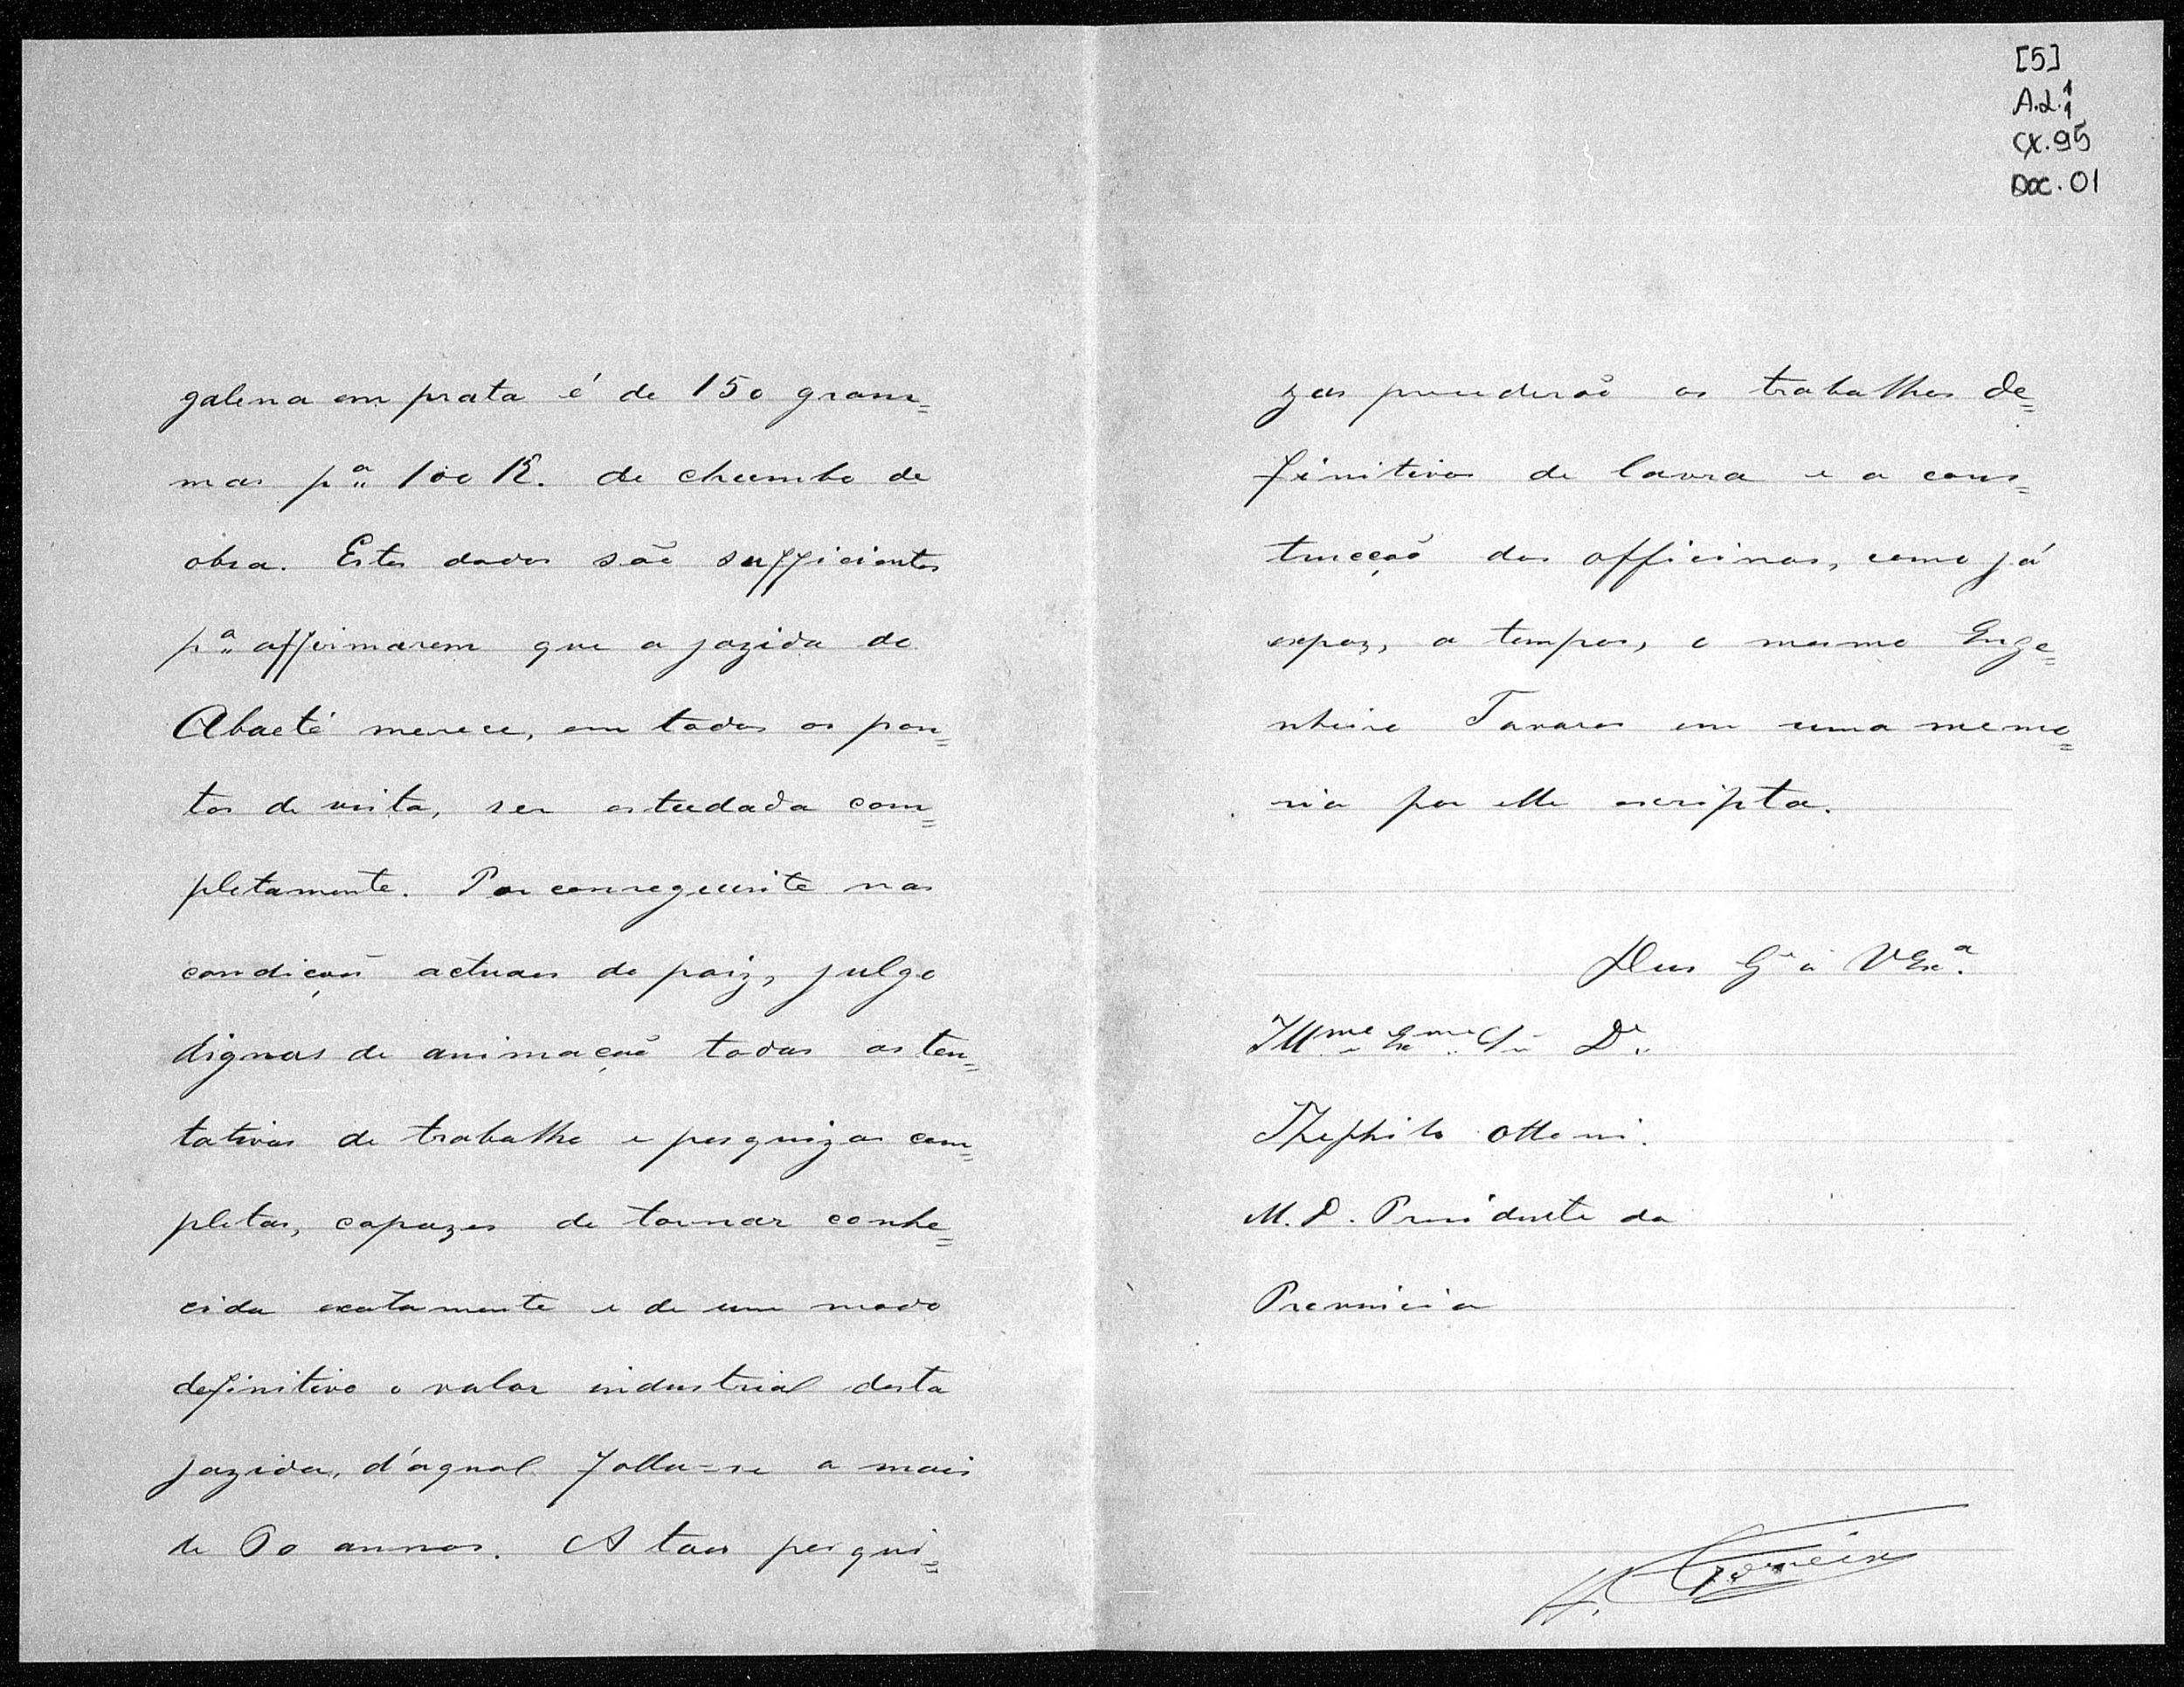 [5]
A.L.1
1
CX.95
Doc. 01
galena em prata é de 150 gram=
mas pª 100 K. de chumbo de
obra. Estes dados são sufficientes
pª affirmarem que a jazida do
Abaeté merece, em todos os pon=
tos de vista, ser estudada com=
pletamente. Por conseguinte nas
condiçoẽs actuaes do paiz, julgo
dignas de animaçaõ todas as ten=
tativas de trabalho e pesquizas com=
pletas, capazes de tornar conhe=
cida exatamente e de um modo
definitivo o valor industrial desta
jazida, d'aqual falla-se a mais
de annos. A taes pesqui=
zas precederaõ os trabalhos de=
finitivos de lavra e a cons=
trucçaõ das officinas, como já
expoz, a tempos, o mesmo Enge=
nheiro Tavares em uma memo=
ria por elle escripta.
Deus Gᵉ a VExª.
Illmo Exmo Sr Dr.
Theophilo Ottoni.
M. D. Presidente da
Provincia
H. Gorceix